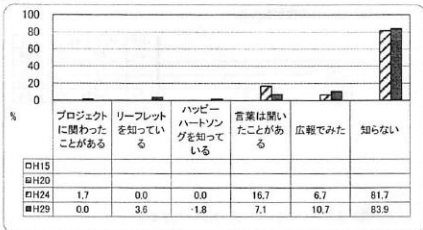 100
80
60
40
20
0
%
プロジェクトに関わったことがある
リーフレットを知っている
ハッピーハートソングを知っている
言葉は聞いたことがある
広報でみた
知らない
H15
H20
H24 1.7 0.0 0.0 16.7 6.7 81.7
H29 0.0 3.6 -1.8 7.1 10.7 83.9